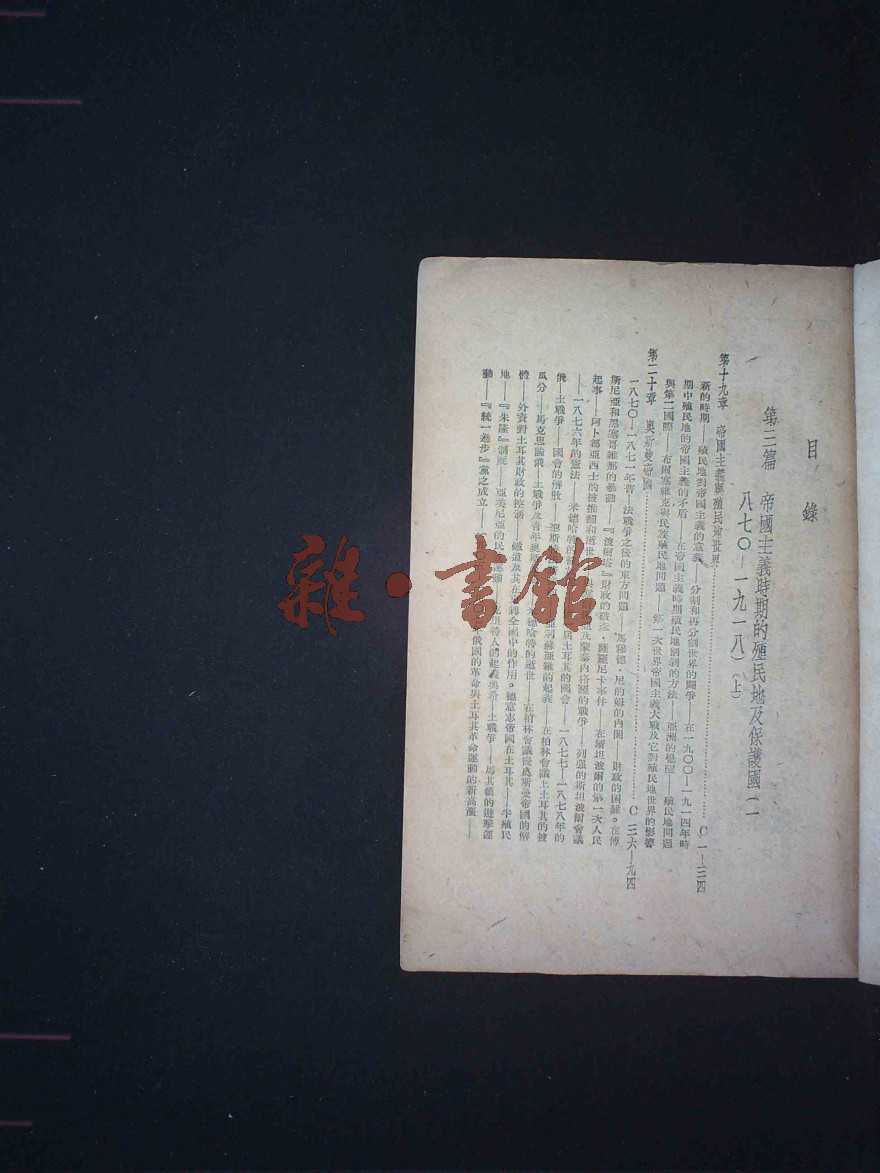 目錄
第三篇　帝國主義時期的殖民地及保護國（一
八七〇—一九一八）（上）
第十九章　帝國主義與殖民地世界……C 一—三四
新的時期——殖民地對帝國主義的意義——分割和再分割世界的鬪爭——在一九〇〇—一九一四年時
期中殖民地的帝國主義的矛盾——在帝國主義時期殖民地剝削的方法——亞洲的覺醒——殖民地問題
與第二國際——布爾塞維克與民族殖民地問題——第一次世界帝國主義大戰及它對殖民地世界的影響
第二十章　奧斯曼帝國……C 三六—九四
一八七〇—一八七一年普—法戰爭之後的東方問題——馬穆德·尼的姆的內閣——財政的困難。在博
斯尼亞和黑塞哥維那的暴動——『波爾塔』財政的破產·薩羅尼卡事件——在斯坦波爾的第一次人民
起事——阿卜都亞西士的被推翻和逝世——及蒙泰內格羅的戰爭——列强的斯坦波爾會議
——一八七六年的憲法——米德哈特的——屆土耳其的國會——一八七七—一八七八年的
俄—土戰爭——國會的解散——聖斯——蘇亞維的起義——在柏林會議上土耳其的被
瓜分——馬克思論俄—土戰爭及青年奧斯——米德哈特的逝世——在柏林會議後奧斯曼帝國的解
體——外資對土耳其財政的控制——鐵道及其在剝削全國中的作用。德意志帝國在土耳其——半殖民
地——『朱隆』制度——亞美尼亞的民——運動——克里特人的起義與希—土戰爭——馬其頓的遊擊運
動——『統一進步』黨之成立——俄國的革命與土耳其革命運動的新高漲——
雜·書館